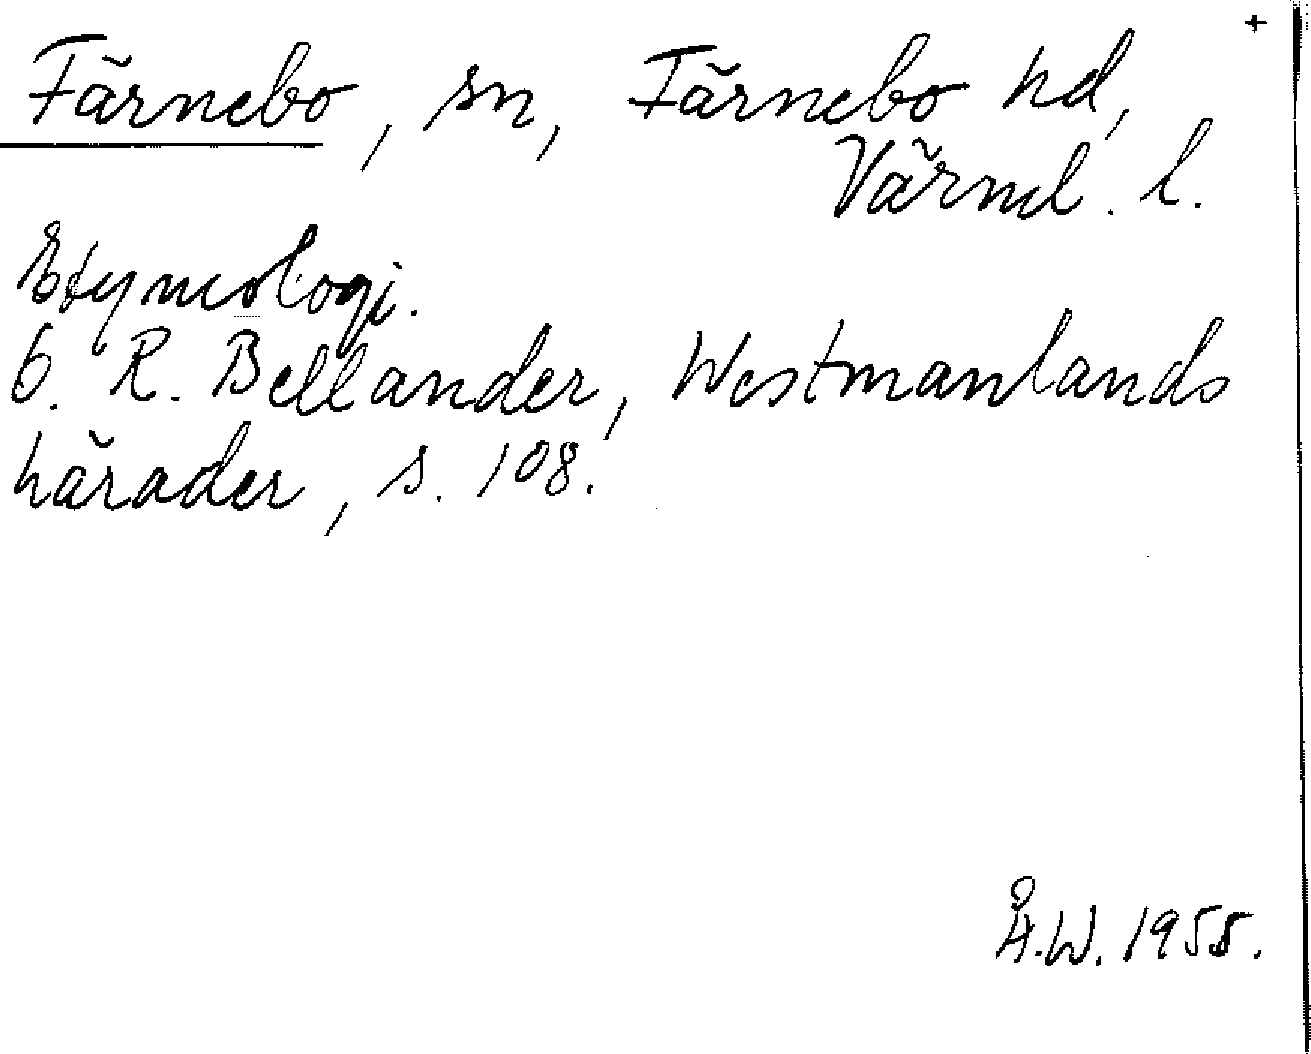 +
Färnebo, sn, Färnebo hd,
Värml. l.
Etymologi.
G. R. Bellander, Westmanlands
härader, s. 108.
Å.W. 1955.